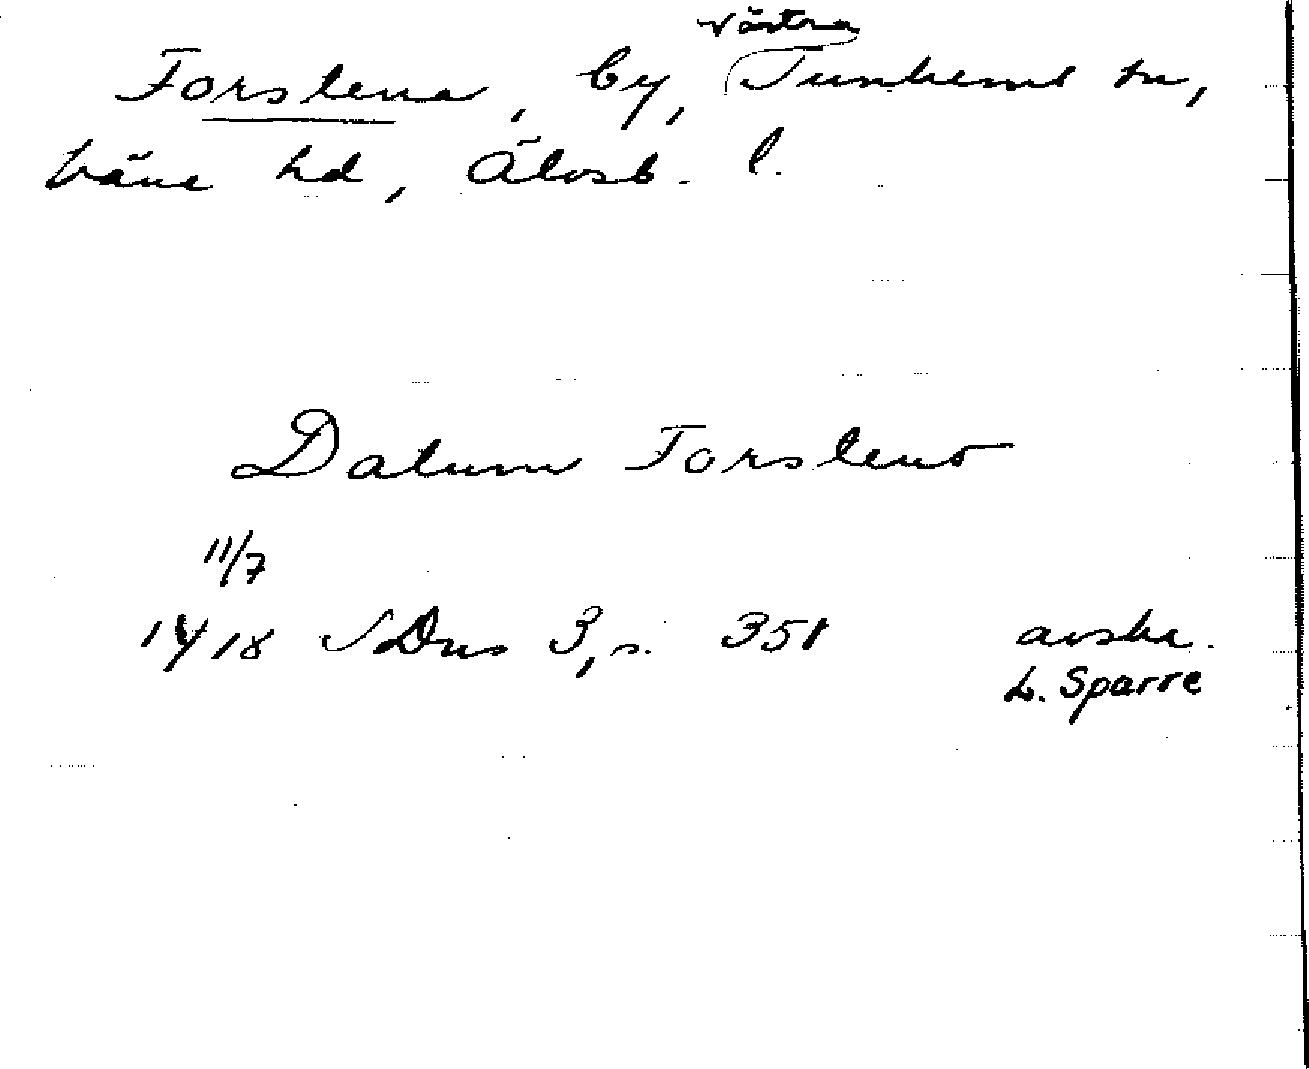 Västra
Forstena, by, Tunhems sn,
Väne hd, Älvsb. l.
Datum Forstena
11/7
1418 SDns 3, s. 351 avskr.
L. Sparre